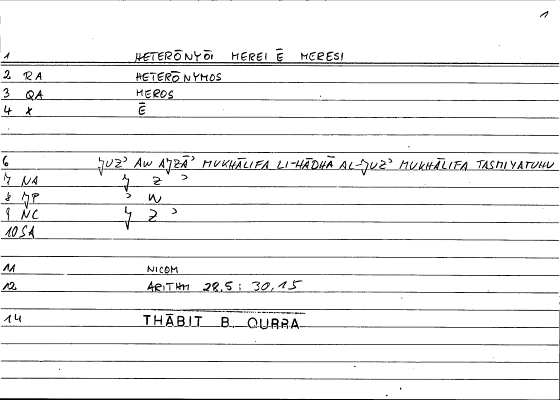 1
1 HETERŌNYŌI MEREI Ē MERESI
2 RA HETERŌNYMOS
3 QA MEROS
4 X Ē
6 ǦUZʾ AW AǦZĀʾ MUKHĀLIFA LI-HĀDHĀ AL-ǦUZʾ MUKHĀLIFA TASMIYATUHU
7 NA Ǧ Z ʾ
8 ǦP ʾ W
9 NC Ǧ Z ʾ
10 SA
11 NICOM
12 ARITHM 28,5 ; 30,15
14 THĀBIT B. QURRA